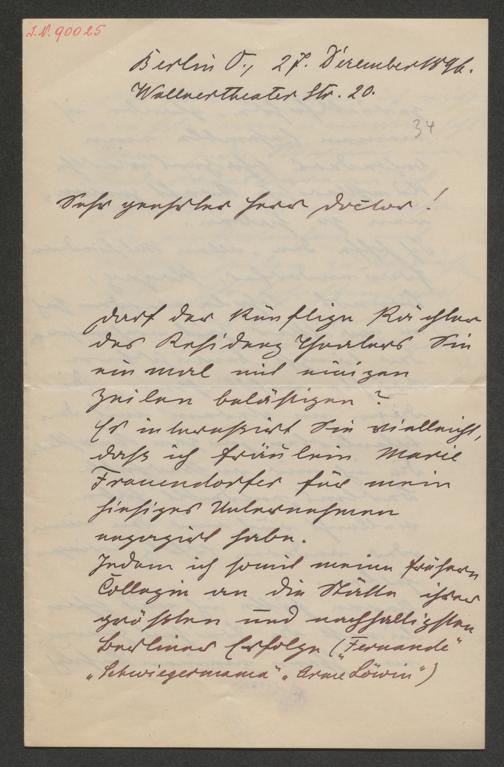 J.N. 90025
Berlin O., 27. Dezember 1896.
Wallnertheater Str. 20.
34
Sehr geehrter Herr Doctor!
Darf der künftige Pächter
des Residenz Theaters Sie
ein mal mit einigen
Zeilen belästigen?
Es interessirt Sie vielleicht,
daß ich Fräulein Marie
Frauendorfer für mein
hiesiges Unternehmen
engagirt habe.
Indem ich somit meine frühere
Collegin an die Stätte ihrer
größten und nachhaltigsten
Berliner Erfolge („Fernande“
„Schwiegermama“ „Arme Löwin“)